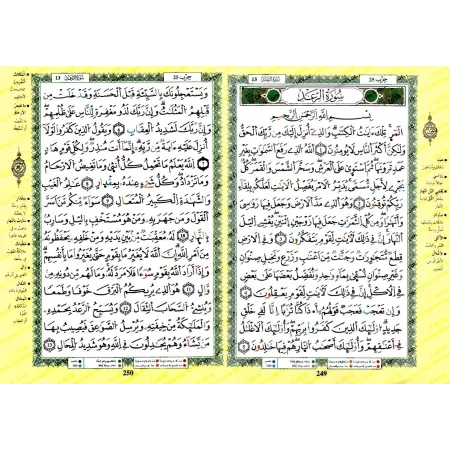 حزب 25
13
سُورَةُ الرَّعْدِ
بِسْمِ اللَّهِ الرَّحْمَٰنِ الرَّحِيمِ
الٓمٓرۚ تِلْكَ ءَايَٰتُ الْكِتَٰبِۗ وَالَّذِىٓ أُنزِلَ إِلَيْكَ مِن رَّبِّكَ الْحَقُّ
وَلَٰكِنَّ أَكْثَرَ النَّاسِ لَا يُؤْمِنُونَ ١ اللَّهُ الَّذِى رَفَعَ السَّمَٰوَٰتِ بِغَيْرِ
عَمَدٍ تَرَوْنَهَاۖ ثُمَّ اسْتَوَىٰ عَلَى الْعَرْشِۖ وَسَخَّرَ الشَّمْسَ وَالْقَمَرَۖ كُلٌّ
يَجْرِى لِأَجَلٍ مُّسَمًّىۚ يُدَبِّرُ الْأَمْرَ يُفَصِّلُ الْءَايَٰتِ لَعَلَّكُم بِلِقَآءِ
رَبِّكُمْ تُوقِنُونَ ٢ وَهُوَ الَّذِى مَدَّ الْأَرْضَ وَجَعَلَ فِيهَا رَوَٰسِىَ
وَأَنْهَٰرًاۖ وَمِن كُلِّ الثَّمَرَٰتِ جَعَلَ فِيهَا زَوْجَيْنِ اثْنَيْنِۖ يُغْشِى الَّيْلَ
النَّهَارَۚ إِنَّ فِى ذَٰلِكَ لَءَايَٰتٍ لِّقَوْمٍ يَتَفَكَّرُونَ ٣ وَفِى الْأَرْضِ
قِطَعٌ مُّتَجَٰوِرَٰتٌ وَجَنَّٰتٌ مِّنْ أَعْنَٰبٍ وَزَرْعٌ وَنَخِيلٌ صِنْوَانٌ
وَغَيْرُ صِنْوَانٍ يُسْقَىٰ بِمَآءٍ وَٰحِدٍ وَنُفَضِّلُ بَعْضَهَا عَلَىٰ بَعْضٍ
فِى الْأُكُلِۚ إِنَّ فِى ذَٰلِكَ لَءَايَٰتٍ لِّقَوْمٍ يَعْقِلُونَ ٤
وَإِن تَعْجَبْ فَعَجَبٌ قَوْلُهُمْ أَءِذَا كُنَّا تُرَٰبًا أَءِنَّا لَفِى خَلْقٍ
جَدِيدٍۗ أُو۟لَٰٓئِكَ الَّذِينَ كَفَرُوا۟ بِرَبِّهِمْۖ وَأُو۟لَٰٓئِكَ الْأَغْلَٰلُ
فِىٓ أَعْنَاقِهِمْۖ وَأُو۟لَٰٓئِكَ أَصْحَٰبُ النَّارِۖ هُمْ فِيهَا خَٰلِدُونَ ٥
249
حزب 25
13
وَيَسْتَعْجِلُونَكَ بِالسَّيِّئَةِ قَبْلَ الْحَسَنَةِ وَقَدْ خَلَتْ مِن
قَبْلِهِمُ الْمَثُلَٰتُۗ وَإِنَّ رَبَّكَ لَذُو مَغْفِرَةٍ لِّلنَّاسِ عَلَىٰ ظُلْمِهِمْۖ
وَإِنَّ رَبَّكَ لَشَدِيدُ الْعِقَابِ ٦ وَيَقُولُ الَّذِينَ كَفَرُوا۟ لَوْلَآ
أُنزِلَ عَلَيْهِ ءَايَةٌ مِّن رَّبِّهِۦٓۗ إِنَّمَآ أَنتَ مُنذِرٌۖ وَلِكُلِّ قَوْمٍ هَادٍ
٧ اللَّهُ يَعْلَمُ مَا تَحْمِلُ كُلُّ أُنثَىٰ وَمَا تَغِيضُ الْأَرْحَامُ
وَمَا تَزْدَادُۖ وَكُلُّ شَىْءٍ عِندَهُۥ بِمِقْدَارٍ ٨ عَٰلِمُ الْغَيْبِ
وَالشَّهَٰدَةِ الْكَبِيرُ الْمُتَعَالِ ٩ سَوَآءٌ مِّنكُم مَّنْ أَسَرَّ
الْقَوْلَ وَمَن جَهَرَ بِهِۦ وَمَنْ هُوَ مُسْتَخْفٍۭ بِالَّيْلِ وَسَارِبٌۢ
بِالنَّهَارِ ١٠ لَهُۥ مُعَقِّبَٰتٌ مِّنۢ بَيْنِ يَدَيْهِ وَمِنْ خَلْفِهِۦ يَحْفَظُونَهُۥ
مِنْ أَمْرِ اللَّهِۗ إِنَّ اللَّهَ لَا يُغَيِّرُ مَا بِقَوْمٍ حَتَّىٰ يُغَيِّرُوا۟ مَا بِأَنفُسِهِمْۗ
وَإِذَآ أَرَادَ اللَّهُ بِقَوْمٍ سُوٓءًا فَلَا مَرَدَّ لَهُۥۚ وَمَا لَهُم مِّن دُونِهِۦ مِن
وَالٍ ١١ هُوَ الَّذِى يُرِيكُمُ الْبَرْقَ خَوْفًا وَطَمَعًا
وَيُنشِئُ السَّحَابَ الثِّقَالَ ١٢ وَيُسَبِّحُ الرَّعْدُ بِحَمْدِهِۦ
وَالْمَلَٰٓئِكَةُ مِنْ خِيفَتِهِۦ وَيُرْسِلُ الصَّوَٰعِقَ فَيُصِيبُ بِهَا
مَن يَشَآءُ وَهُمْ يُجَٰدِلُونَ فِى اللَّهِ وَهُوَ شَدِيدُ الْمِحَالِ ١٣
250